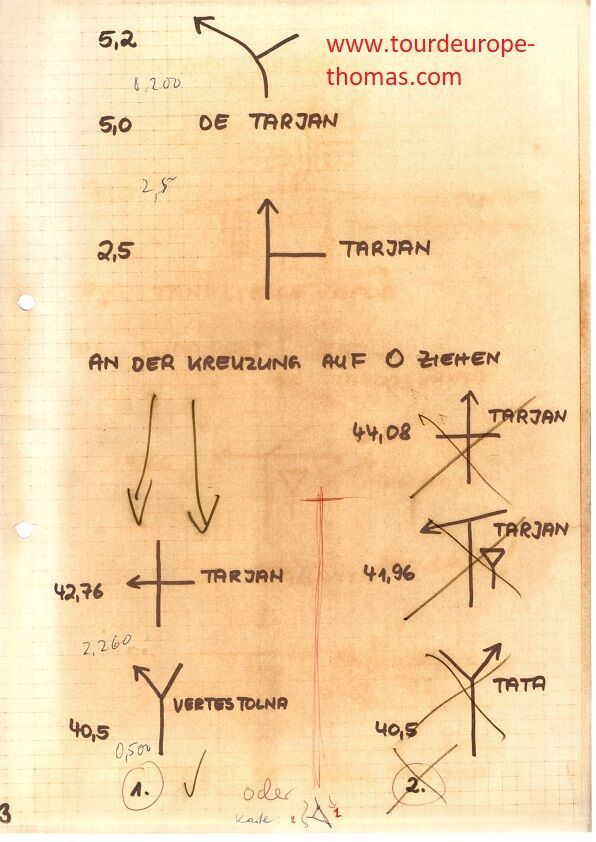 5,2
www.tourdeurope-
thomas.com
0,200
5,0 DE TARJAN
2,5
2,5 TARJAN
AN DER KREUZUNG AUF O ZIEHEN
44,08 TARJAN
42,76 TARJAN
41,96 TARJAN
2,260
40,5 VERTESTOLNA
0,500
40,5 TATA
1.
2.
oder
Karte: 2 1
3